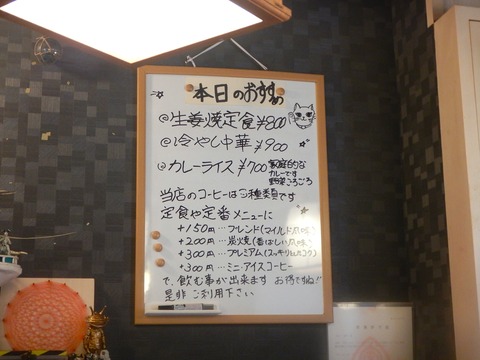 本日のおすすめ
◎生姜焼定食 ¥800
◎冷やし中華 ¥900
◎カレーライス ¥700
家庭的な
カレーです
野菜ごろごろ
当店のコーヒーは3種類です
定食や定番メニューに
+150円…ブレンド(マイルド風味)
+200円…炭焼(香ばしい風味)
+300円…プレミアム(スッキリとコク)
+300円…ミニ・アイスコーヒー
で、飲む事が出来ます お得ですね!!
是非ご利用下さい